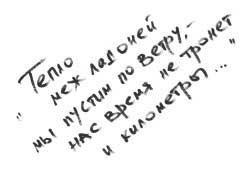 "Тепло
меж ладоней
мы пустим по ветру,-
нас время не тронет
и километры..."